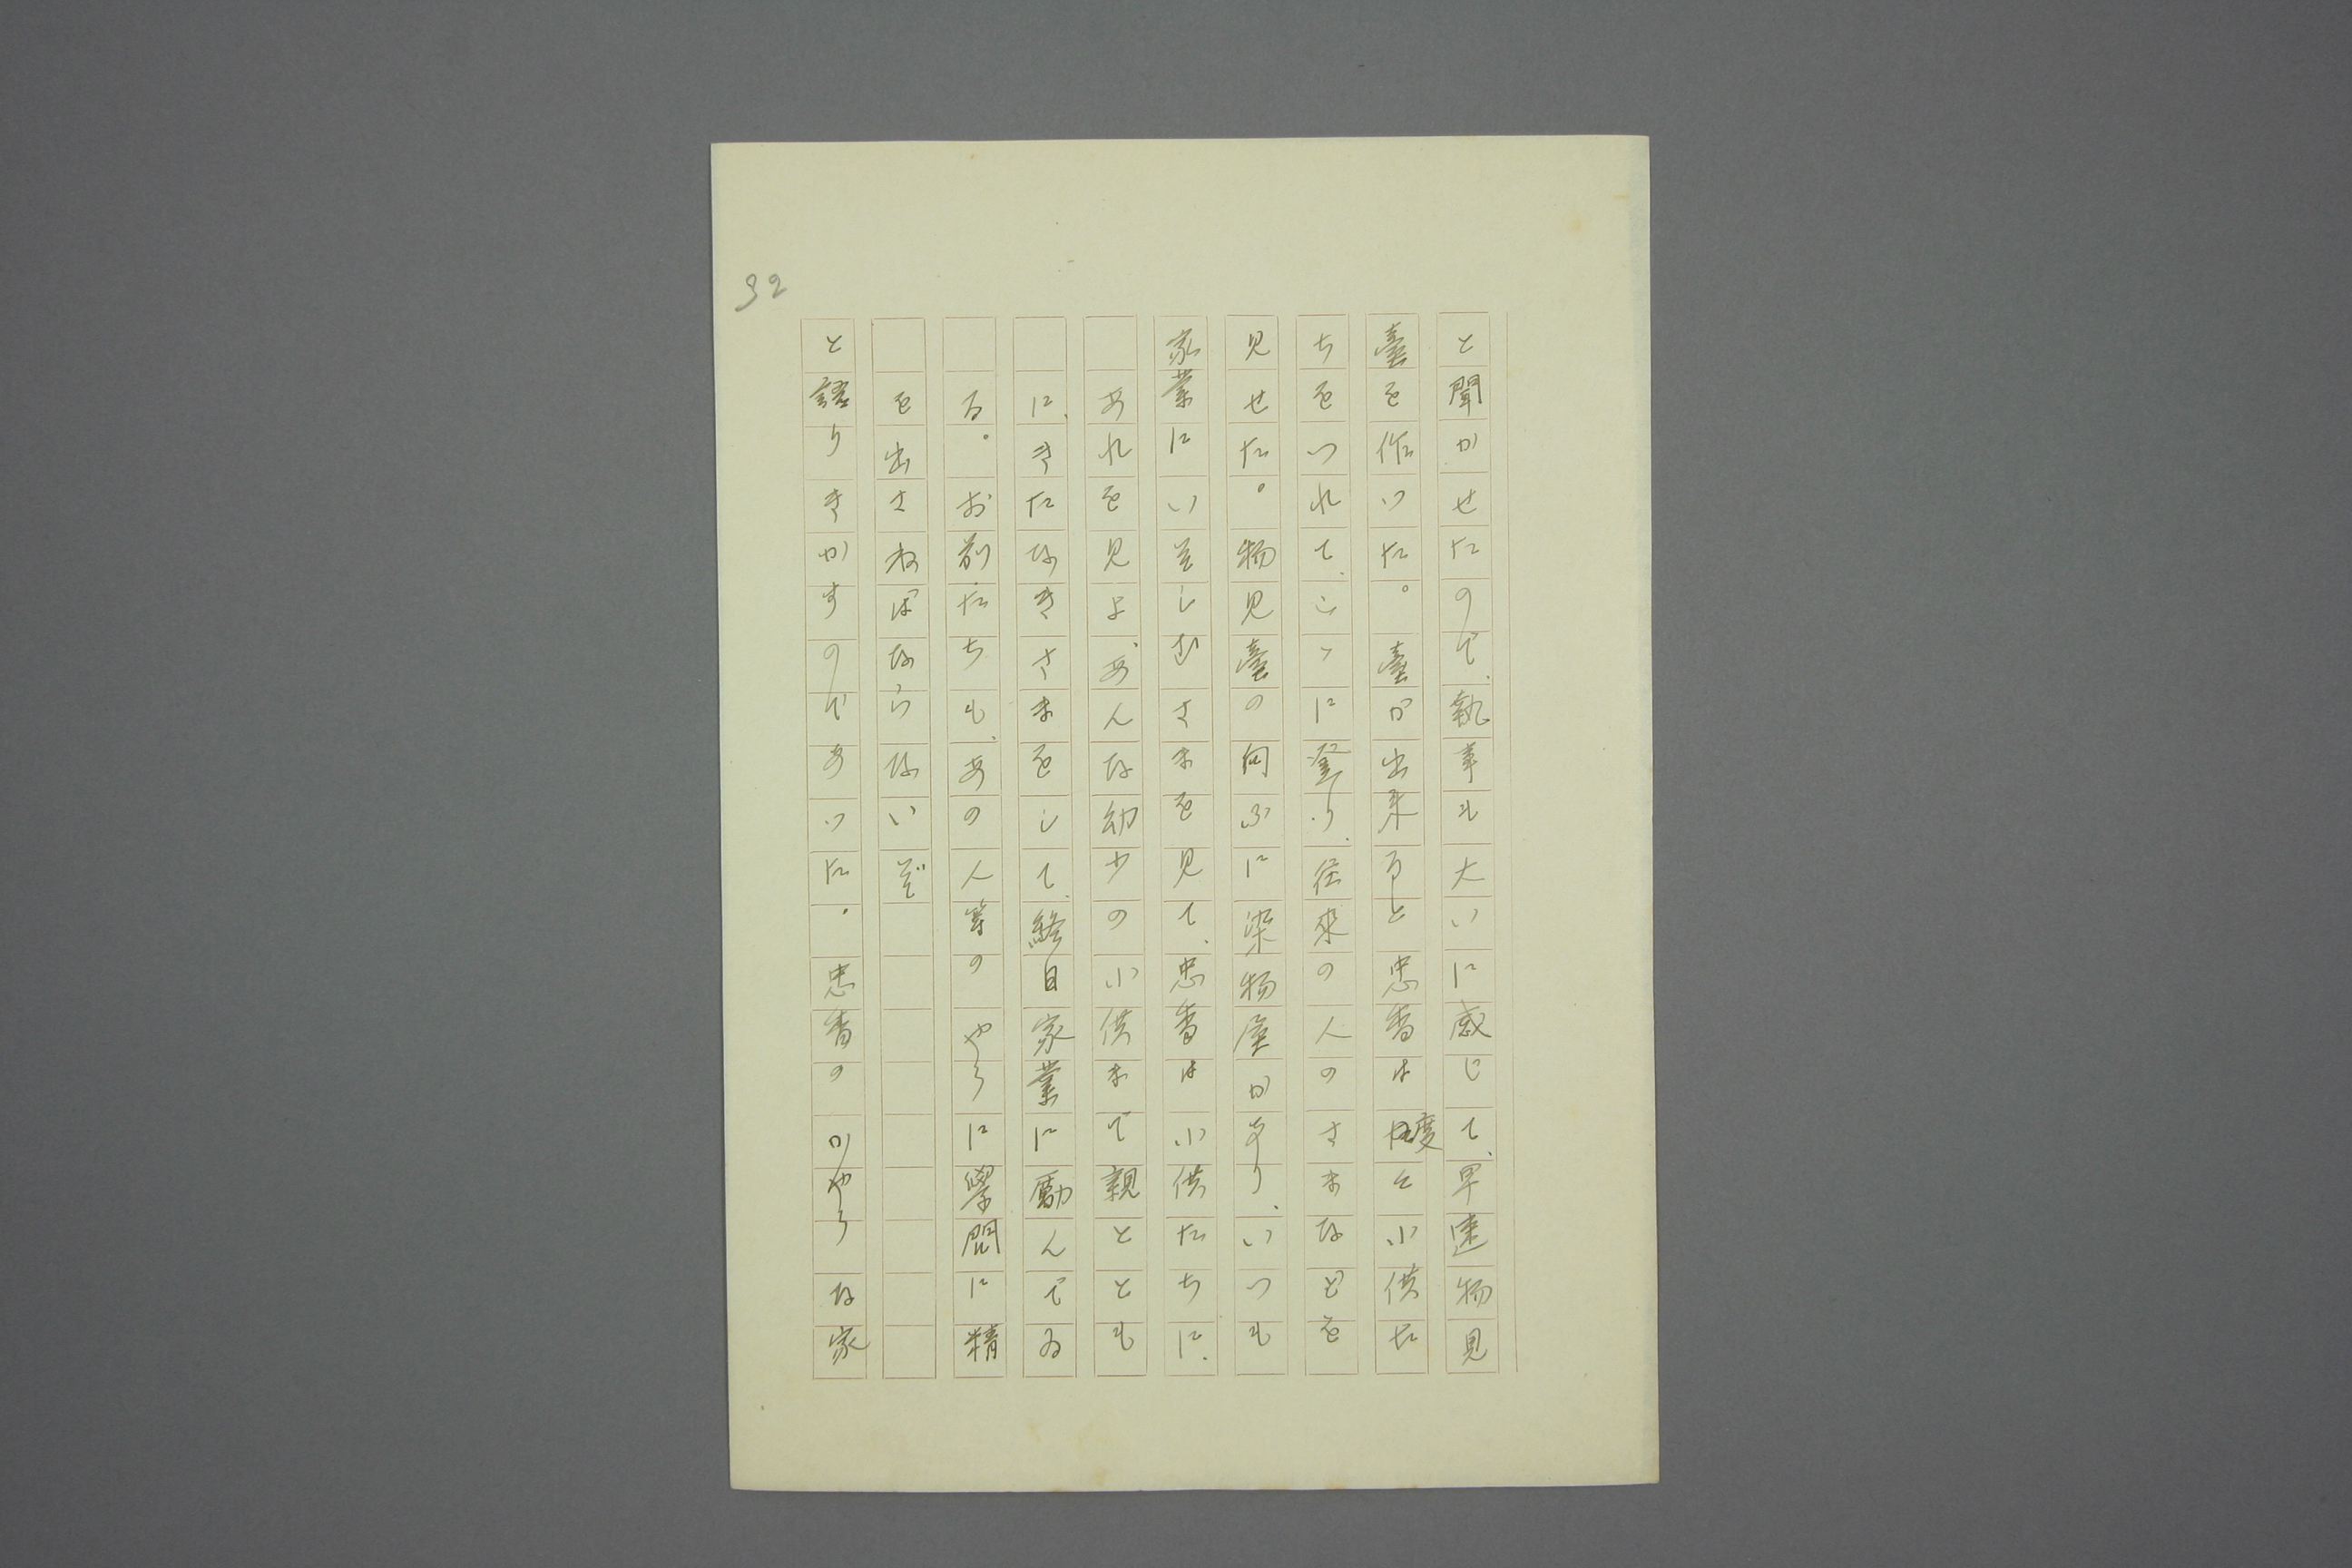 32
と聞かせたので、執事も大いに感じて、早速物見
臺を作つた。臺が出来ると忠香は度々小供た
ちをつれて、こゝに登り、往来の人のさまなどを
見せた。物見臺の向ふに染物屋があり、いつも
家業にいそしむさまを見て、忠香は小供たちに、
あれを見よ、あんな幼少の小供まで親ととも
に、きたなきさまをして、終日家業に勵んでゐ
る。お前たちも、あの人等のやうに學問に精
を出さねばならないぞ
と語りきかすのであつた。忠香のかやうな家